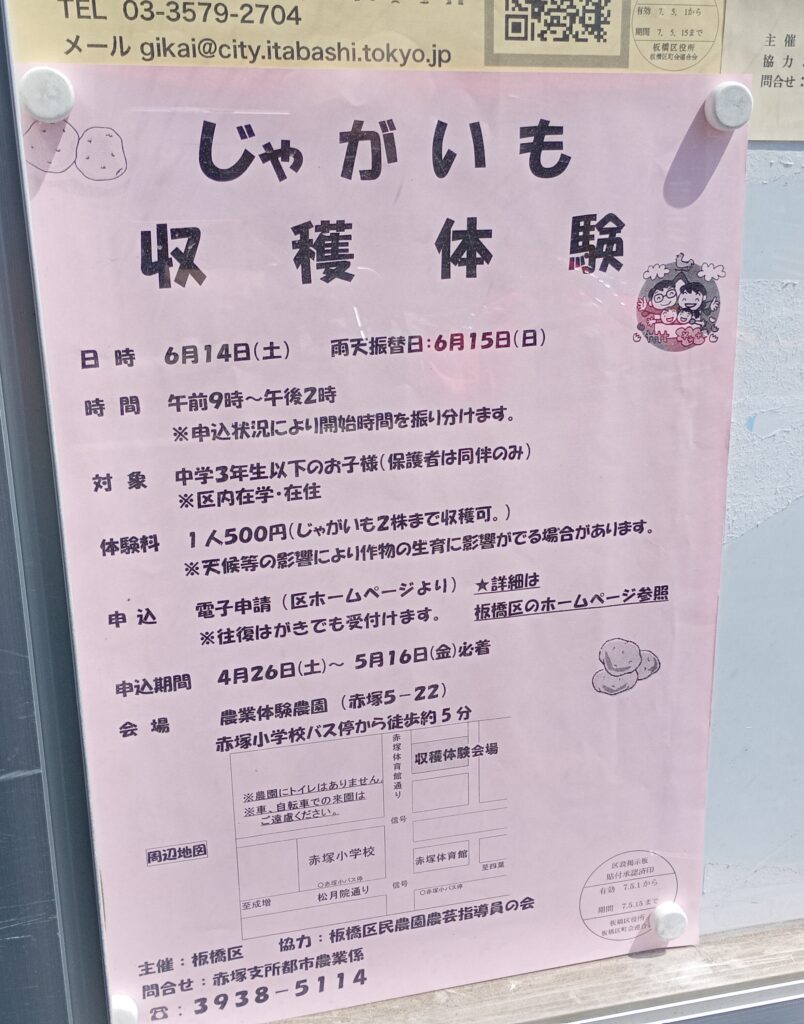 TEL 03-3579-2704
メール gikai@city.itabashi.tokyo.jp
有効 7. 5. 1から
期間 7. 5. 15まで
板橋区役所
板橋区町会連合会
主催
協力:
問合せ:
じゃがいも
収穫体験
日時 6月14日(土) 雨天振替日:6月15日(日)
時間 午前9時～午後2時
※申込状況により開始時間を振り分けます。
対象 中学3年生以下のお子様(保護者は同伴のみ)
※区内在学・在住
体験料 1人500円(じゃがいも2株まで収穫可。)
※天候等の影響により作物の生育に影響がでる場合があります。
申込 電子申請(区ホームページより) ★詳細は
※往復はがきでも受付けます。 板橋区のホームページ参照
申込期間 4月26日(土)～ 5月16日(金)必着
会場 農業体験農園 (赤塚5-22)
赤塚小学校バス停から徒歩約5分
赤塚体育館通り
収穫体験会場
※農園にトイレはありません。
※車、自転車での来園は
ご遠慮ください。
信号
周辺地図
赤塚小学校
赤塚体育館
至四葉
○赤塚小バス停
至成増
松月院通り
信号
○赤塚小バス停
区設掲示板
貼付承認済印
有効 7.5.1から
期間 7.5.15まで
板橋区役所
板橋区町会連合会
主催:板橋区 協力:板橋区民農園農芸指導員の会
問合せ:赤塚支所都市農業係
☎:3938-5114